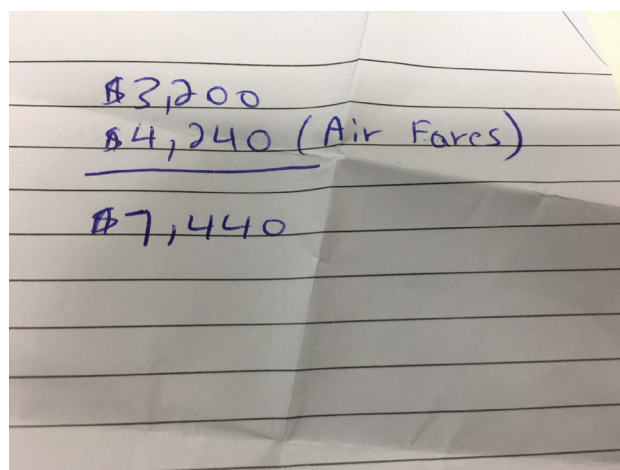 $3,200
$4,240 (Air Fares)
$7,440